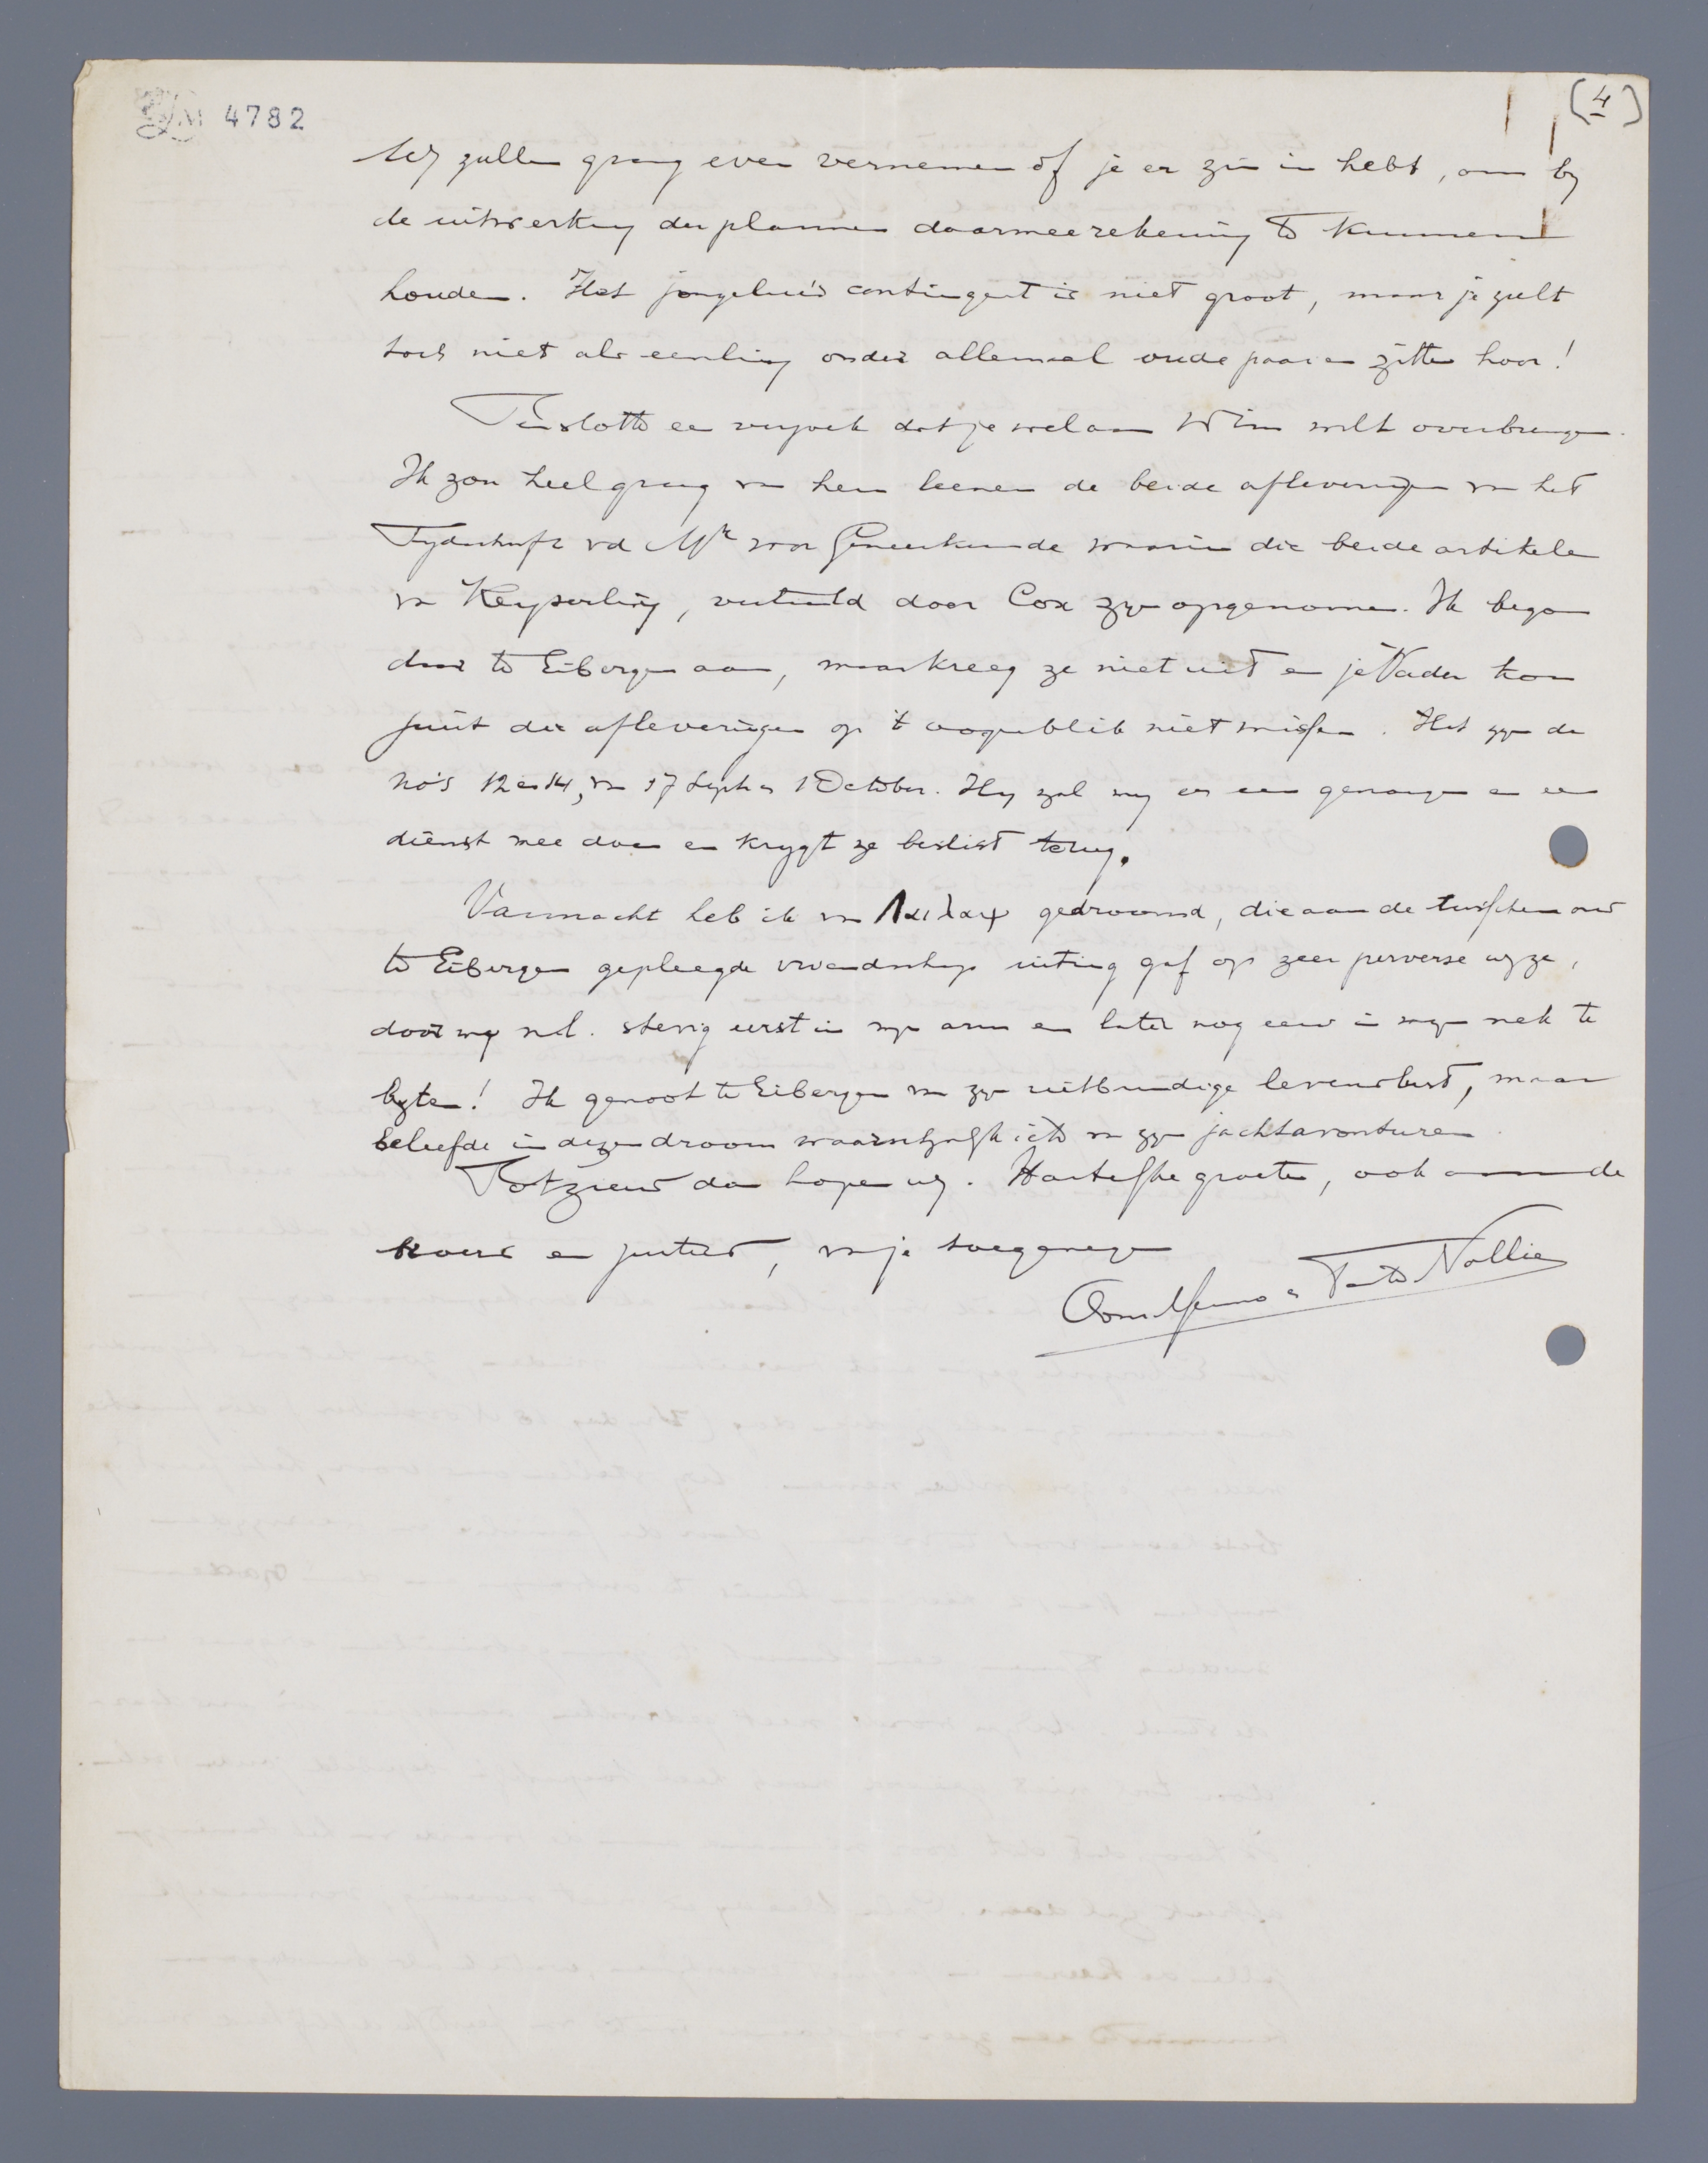 4782
(4)
Wij zullen graag even vernemen of je er zin in hebt, om bij
de uitwerking der plannen daarmee rekening te kunnen
houden. Het jongelui's contingent is niet groot, maar je zult
toch niet als eenling onder allemaal oude paaien zitten hoor!
Tenslotte een verzoek dat je wel aan Wim wilt overbrengen.
Ik zou heel graag van hem leenen de beide afleveringen van het
Tijdschrift v.d. Mij voor Geneeskunde waarin die beide artikelen
van Keyserling, vertaald door Cox zijn opgenomen. Ik begon
daar te Eibergen aan, maar kreeg ze niet uit en je Vader kon
juist die afleveringen op 't oogenblik niet missen. Het zijn de
no's 12 en 14, van 17 Sept en 1 October. Hij zal mij er een genoegen en een
dienst mee doen en krijgt ze beslist terug.
Vannacht heb ik van Λαιλαψ gedroomd, die aan de tusschen ons
te Eibergen gepleegde vriendschap uiting gaf op zeer perverse wijze,
door mij nl. stevig eerst in mijn arm en later nog eens in mijn nek te
bijten! Ik genoot te Eibergen van zijn uitbundige levenslust, maar
beleefde in dezen droom waarschijnlijk iets van zijn jachtavonturen
Tot ziens dan hopen wij. Hartelijke groeten, ook aan de
broers en zusters, van je toegenegen
Oom Menno en Tante Nollie